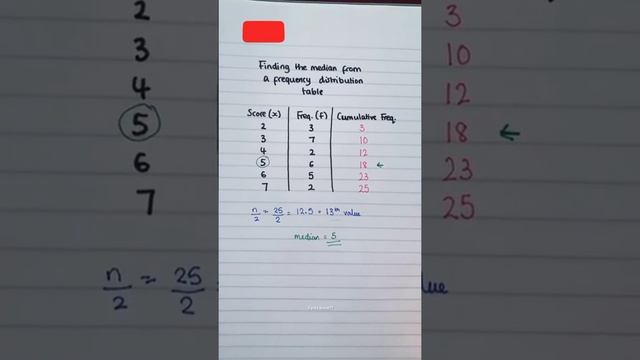 Finding the median from
a frequency distribution
table
Score (x) Freq. (f) Cumulative Freq.
2 3 3
3 7 10
4 2 12
5 6 18 ←
6 5 23
7 2 25
n/2 = 25/2 = 12.5 = 13th value
median = 5
2
3
4
5
6
7
n/2 = 25/2
3
10
12
18 ←
23
25